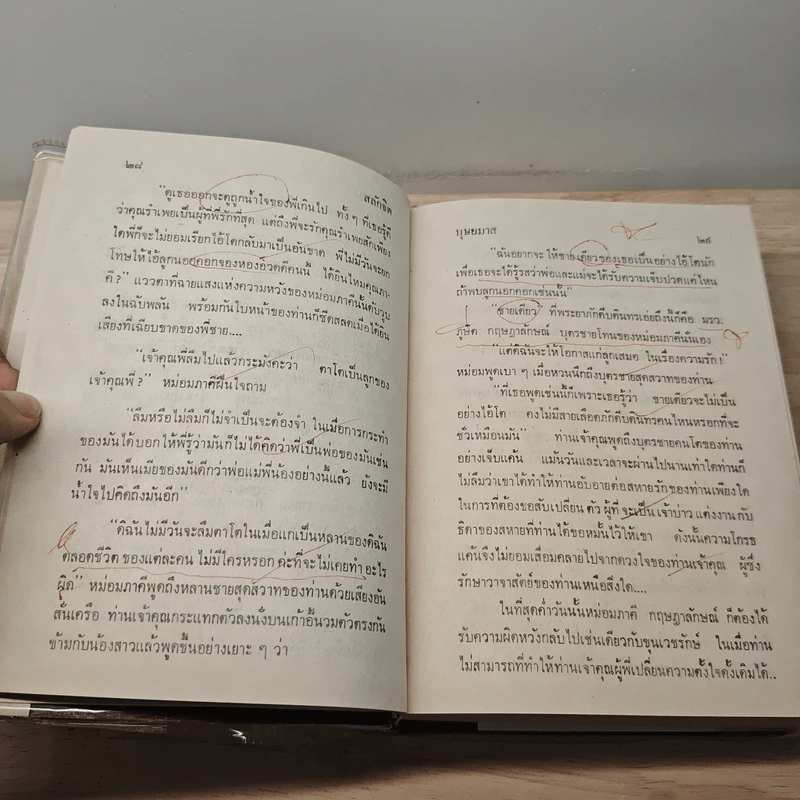 ๒๘
สลักจิต
"ดูเธอออกจะดูถูกน้ำใจของพี่เกินไป ทั้ง ๆ ที่เธอรู้ดี
ว่าคุณรำเพยเป็นผู้ที่พี่รักที่สุด แต่ถึงพี่จะรักคุณรำเพยสักเพียง
ใดพี่ก็จะไม่ยอมเรียกไอ้โตกลับมาเป็นอันขาด พี่ไม่มีวันจะยก
โทษให้ไอ้ลูกนอกคอกจองหองอวดดีคนนี้ ได้ยินไหมคุณภา-
คี?" แววตาที่ฉายแสงแห่งความหวังของหม่อมภาคีนั้นดับวูบ
ลงในฉับพลัน พร้อมกับใบหน้าของท่านก็ซีดสลดเมื่อได้ยิน
เสียงที่เฉียบขาดของพี่ชาย....
"เจ้าคุณพี่ลืมไปแล้วกระมังคะว่า ตาโตเป็นลูกของ
เจ้าคุณพี่?" หม่อมภาคีฝืนใจถาม
"ลืมหรือไม่ลืมก็ไม่จำเป็นจะต้องจำ ในเมื่อการกระทำ
ของมันได้บอกให้พี่รู้ว่ามันก็ไม่ได้คิดว่าพี่เป็นพ่อของมันเช่น
กัน มันเห็นเมียของมันดีกว่าพ่อแม่พี่น้องอย่างนี้แล้ว ยังจะมี
น้ำใจไปคิดถึงมันอีก"
"ดิฉันไม่มีวันจะลืมตาโตในเมื่อแกเป็นหลานของดิฉัน
ตลอดชีวิตของแต่ละคน ไม่มีใครหรอก ค่ะที่จะไม่เคยทำอะไร
ผิด" หม่อมภาคีพูดถึงหลานชายสุดสวาทของท่านด้วยเสียงอัน
สั่นเครือ ท่านเจ้าคุณกระแทกตัวลงนั่งบนเก้าอี้นวมตัวตรงกัน
ข้ามกับน้องสาวแล้วพูดขึ้นอย่างเยาะ ๆ ว่า
บุษยมาส
๒๙
"ฉันอยากจะให้ชายเดียวของเธอเป็นอย่างไอ้โตนัก
เพื่อเธอจะได้รู้รสว่าพ่อและแม่จะได้รับความเจ็บปวดแค่ไหน
ถ้าพบลูกนอกคอกเช่นนั้น"
"ชายเดียว" ที่พระยาภักดีบดินทรเอ่ยถึงนี้ก็คือ มรว.
ภูษิต กฤษฎาลักษณ์ บุตรชายโทนของหม่อมภาคีนั่นเอง
"แต่ดิฉันจะให้โอกาสแก่ลูกเสมอ ในเรื่องความรัก!"
หม่อมพูดเบา ๆ เมื่อหวนนึกถึงบุตรชายสุดสวาทของท่าน
"ที่เธอพูดเช่นนี้ก็เพราะเธอรู้ว่า ชายเดียวจะไม่เป็น
อย่างไอ้โต คงไม่มีสายเลือดภักดีบดินทร์คนไหนหรอกที่จะ
ชั่วเหมือนมัน" ท่านเจ้าคุณพูดถึงบุตรชายคนโตของท่าน
อย่างเจ็บแค้น แม้นวันและเวลาจะผ่านไปนานเท่าใดท่านก็
ไม่ลืมว่าเขาได้ทำให้ท่านอับอายต่อสหายรักของท่านเพียงใด
ในการที่ต้องขอสับเปลี่ยน ตัว ผู้ที่ จะเป็น เจ้าบ่าว แต่งงาน กับ
ธิดาของสหายที่ท่านได้ขอหมั้นไว้ให้เขา ดังนั้นความโกรธ
แค้นจึงไม่ยอมเสื่อมคลายไปจากดวงใจของท่านเจ้าคุณ ผู้ซึ่ง
รักษาวาจาสัตย์ของท่านเหนือสิ่งใด....
ในที่สุดค่ำวันนั้นหม่อมภาคี กฤษฎาลักษณ์ ก็ต้องได้
รับความผิดหวังกลับไปเช่นเดียวกับขุนเวชรักษ์ ในเมื่อท่าน
ไม่สามารถที่ทำให้ท่านเจ้าคุณผู้พี่เปลี่ยนความตั้งใจดั้งเดิมได้..